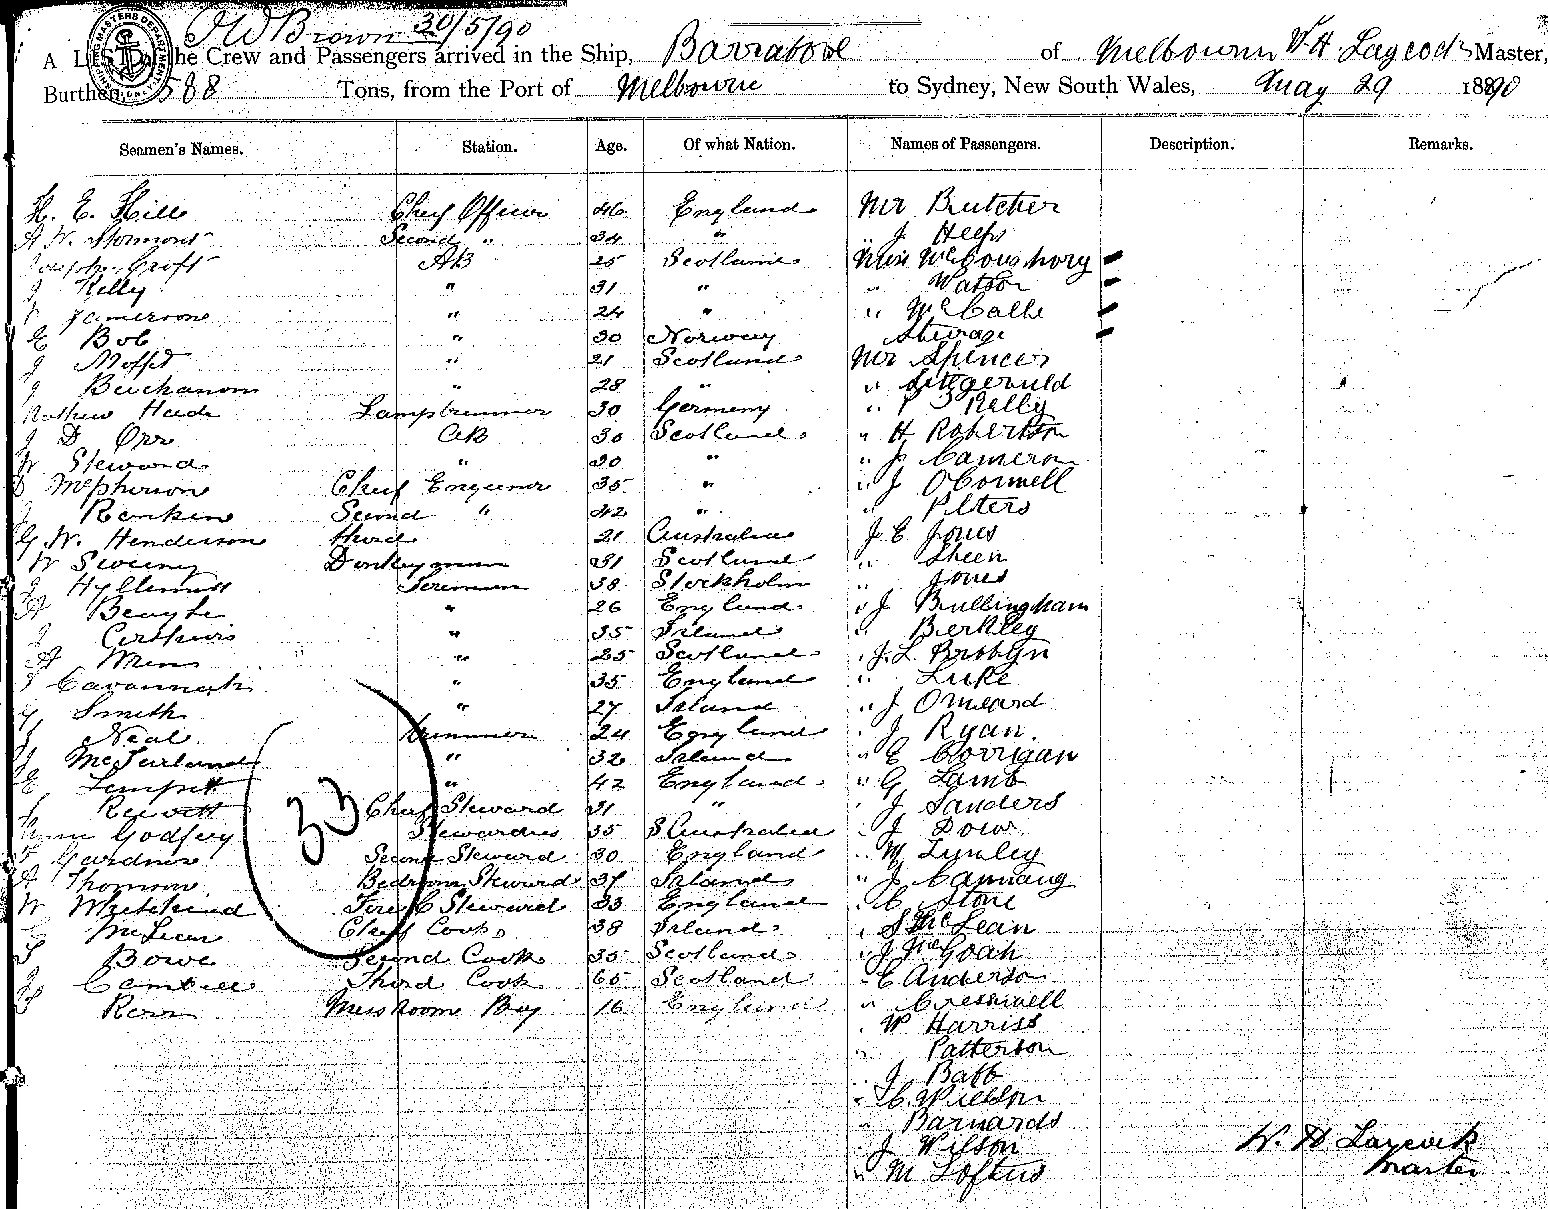 J W Brown 30/5/90
A LIST of the Crew and Passengers arrived in the Ship, Barrabool of Melbourne W. H. Laycock Master,
Burthen, 588 Tons, from the Port of Melbourne to Sydney, New South Wales, May 29 1890
Seamen's Names. Station. Age. Of what Nation. Names of Passengers. Description. Remarks.
H. E. Hill Chief Officer 46 England Mr Butcher
A W. Stormont Second " 34 " " J Heeps
Joseph Croft AB 25 Scotland Miss
J Kelly " 31 " " Watson
Jamersone " 24 " " McCalli
E Bob " 30 Norway Sterage
J Moffit " 21 Scotland Mr Spencer
J Buchanom " 28 " " Fitzgerald
Hade Lamptrimmer 30 Germeny " Kelly
J D Orr AB 30 Scotland " H Robertson
W Steward " 30 " " J Cameron
McPherson Chief Engineer 35 " " J O'Connell
Renkin Second " 42 " " Peters
G. W. Henderson third 21 Australia J E Jones
W Sweeny Donkeyman 31 Scotland " Sheen
J Fireman 38 Stockholm " Jones
A " 26 England " J Bullingham
J " 35 Irland " Berkley
A " 25 Scotland " J. L Broblyn
Cavannagh " 35 England " Luke
G Smith " 27 Irland " J Omeard
Neal trimmer 24 England " J Ryan
J McFarland " 32 Irland " E Corrigan
E " 42 England " G Lamb
Chief Steward 31 " " J Sanders
Godfrey Stewardess 35 S Australia " J Dow
F Gardner Second Steward 30 England " M Lynley
A Thomson Bedroom Steward 37 Irland " J
W Fore C Steward 33 England " C Stone
McLean Chief Cook 38 Irland " S McLean
Bowe Second Cook 35 Scotland " J McGoah
Cambell Third Cook 65 Scotland " C Anderson
Kerr Messroome Boy 16 England " Cresswell
33
" W Harriss
" Patterson
" J Babb
" C. Willson
" Barnards
J Wilson
" M Loftus
W. H Laycock
Master